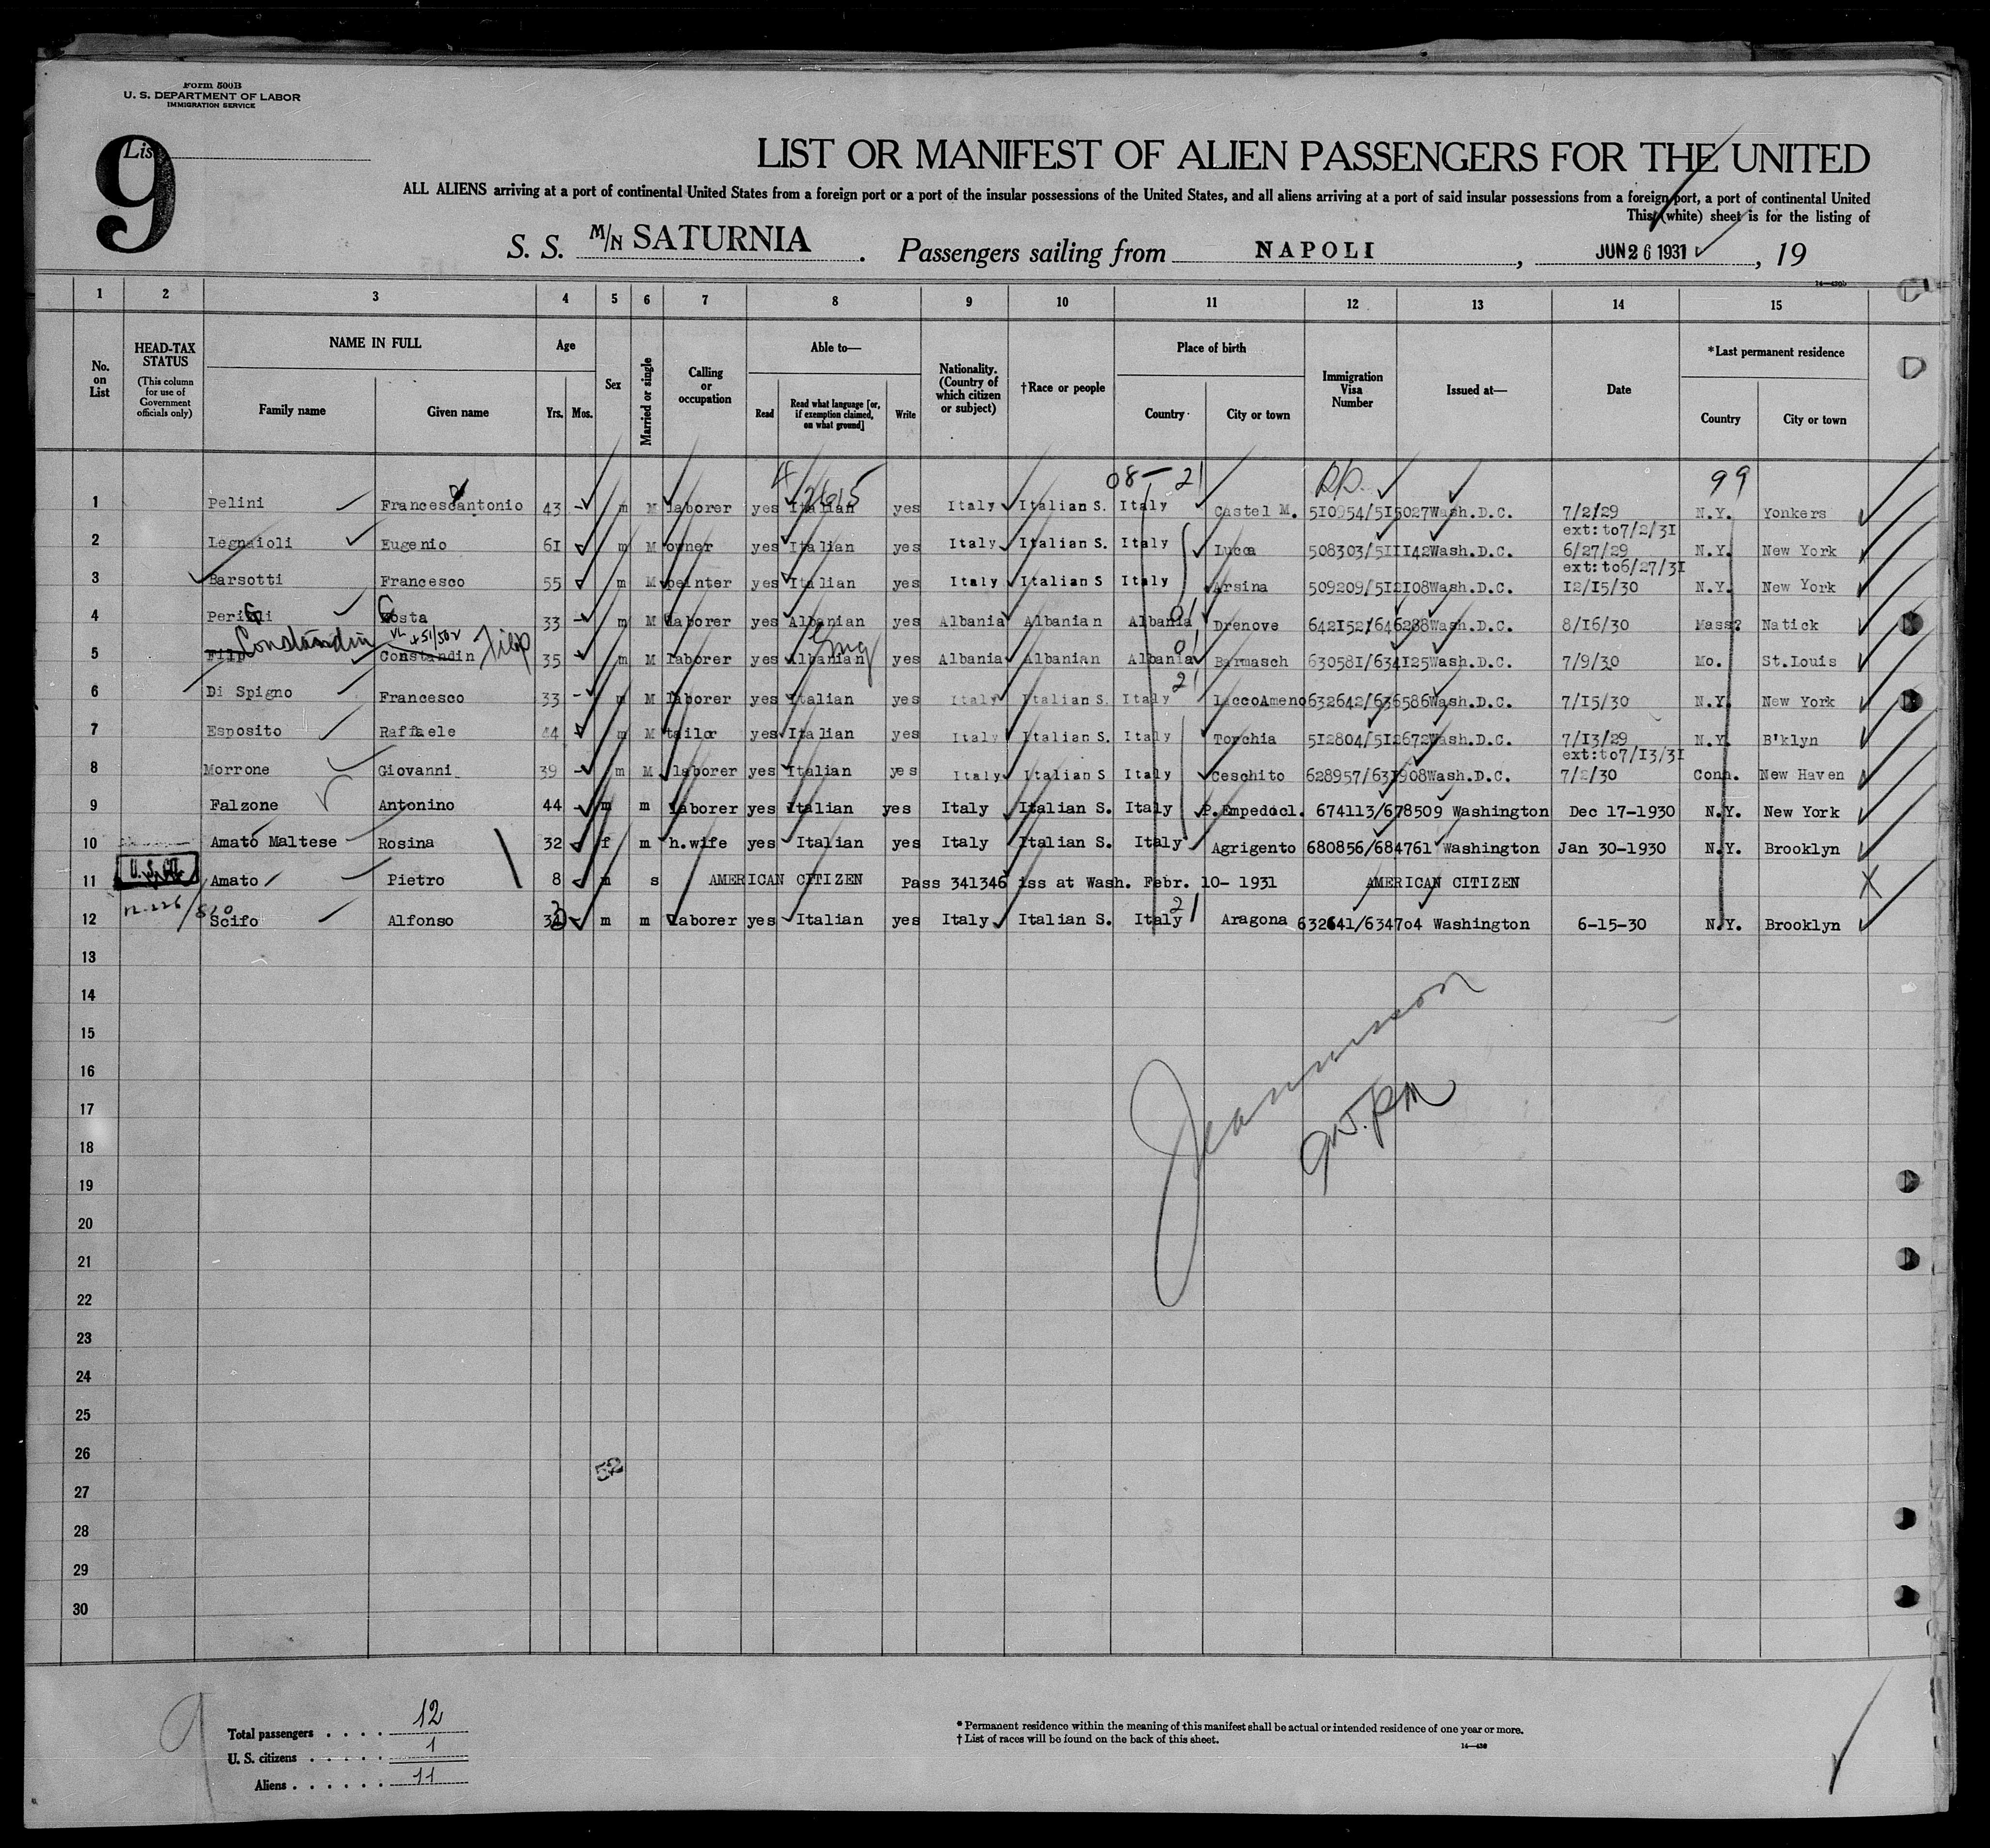 Form 500B
U. S. DEPARTMENT OF LABOR
IMMIGRATION SERVICE
List
9
LIST OR MANIFEST OF ALIEN PASSENGERS FOR THE UNITED
ALL ALIENS arriving at a port of continental United States from a foreign port or a port of the insular possessions of the United States, and all aliens arriving at a port of said insular possessions from a foreign port, a port of continental United
This (white) sheet is for the listing of
S. S. M/N SATURNIA. Passengers sailing from NAPOLI, JUN 26 1931, 19
1 2 3 4 5 6 7 8 9 10 11 12 13 14 15
No. on List
HEAD-TAX STATUS
(This column for use of Government officials only)
NAME IN FULL
Family name Given name
Age
Yrs. Mos.
Sex
Married or single
Calling or occupation
Able to—
Read Read what language [or, if exemption claimed, on what ground] Write
Nationality. (Country of which citizen or subject)
†Race or people
Place of birth
Country City or town
Immigration Visa Number
Issued at—
Date
*Last permanent residence
Country City or town
08 – 21 99
1 Pelini Francescoantonio 43 - m M laborer yes Italian yes Italy Italian S. Italy Castel M. 510954/515027 Wash.D.C. 7/2/29 N.Y. Yonkers
ext:to7/2/31
2 Legnaioli Eugenio 61 m M owner yes Italian yes Italy Italian S. Italy Lucca 508303/511142 Wash.D.C. 6/27/29 N.Y. New York
ext:to6/27/31
3 Barsotti Francesco 55 m M peinter yes Italian yes Italy Italian S Italy Arsina 509209/512108 Wash.D.C. 12/15/30 N.Y. New York
4 Costa 33 - m M laborer yes Albanian yes Albania Albanian Albania Drenove 642152/646288 Wash.D.C. 8/16/30 Mass? Natick
Constandin Filip
5 Filip Constandin 35 m M laborer yes Albanian Eng yes Albania Albanian Albania Barmasch 630581/634125 Wash.D.C. 7/9/30 Mo. St.Louis
6 Di Spigno Francesco 33 - m M laborer yes Italian yes Italy Italian S. Italy LaccoAmeno 632642/636586 Wash.D.C. 7/15/30 N.Y. New York
7 Esposito Raffaele 44 m M tailor yes Italian yes Italy Italian S. Italy Torchia 512804/512672 Wash.D.C. 7/13/29 N.Y. B'klyn
ext:to7/13/31
8 Morrone Giovanni 39 - m M laborer yes Italian yes Italy Italian S Italy Ceschito 628957/631908 Wash.D.C. 7/2/30 Conn. New Haven
9 Falzone Antonino 44 - m m laborer yes Italian yes Italy Italian S. Italy P.Empedocl. 674113/678509 Washington Dec 17-1930 N.Y. New York
10 Amato Maltese Rosina 32 f m h.wife yes Italian yes Italy Italian S. Italy Agrigento 680856/684761 Washington Jan 30-1930 N.Y. Brooklyn
11 Amato Pietro 8 m s AMERICAN CITIZEN Pass 341346 iss at Wash. Febr. 10- 1931 AMERICAN CITIZEN
12 Scifo Alfonso m m laborer yes Italian yes Italy Italian S. Italy Aragona 632641/634704 Washington 6-15-30 N.Y. Brooklyn
13
14
15
16
17
18
19
20
21
22
23
24
25
26
52
27
28
29
30
9
Total passengers . . . . 12
U. S. citizens . . . . . 1
Aliens . . . . . . 11
* Permanent residence within the meaning of this manifest shall be actual or intended residence of one year or more.
† List of races will be found on the back of this sheet.
14—430